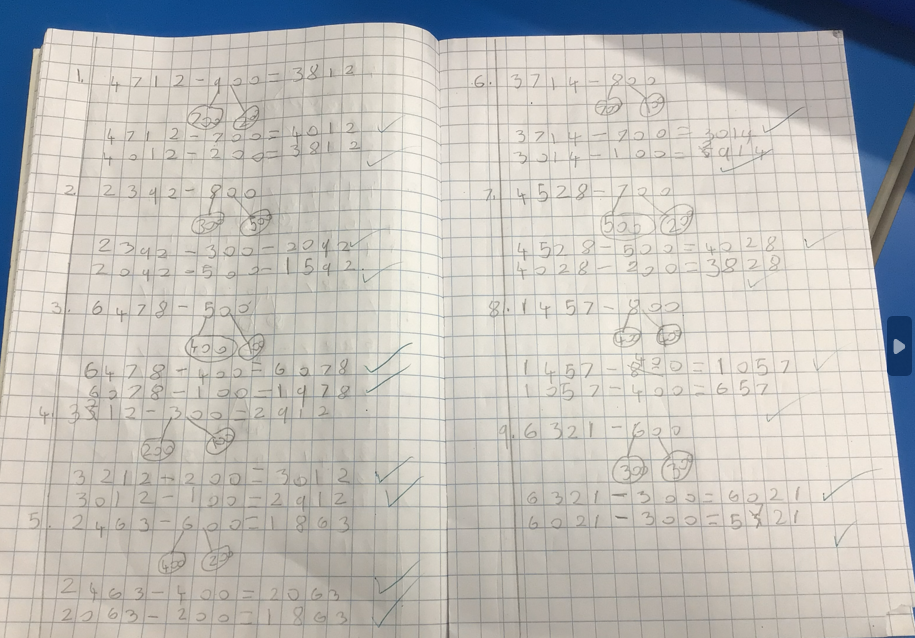 1. 4712-900=3812
700 200
4712-700=4012
4012-200=3812
2. 2392-800
300 500
2392-300=2092
2092-500=1592
3. 6478-500
400
6478-400=6078
6078-100=1978
4. 3212-300=2912
200
3212-200=3012
3012-100=2912
5. 2463-600=1863
400 200
2463-400=2063
2063-200=1863
6. 3714-800
700
3714-700=3014
3014-100=2914
7. 4528-700
500 200
4528-500=4028
4028-200=3828
8. 1457-800
400 400
1457-400=1057
1057-400=657
9. 6321-600
300 300
6321-300=6021
6021-300=5721